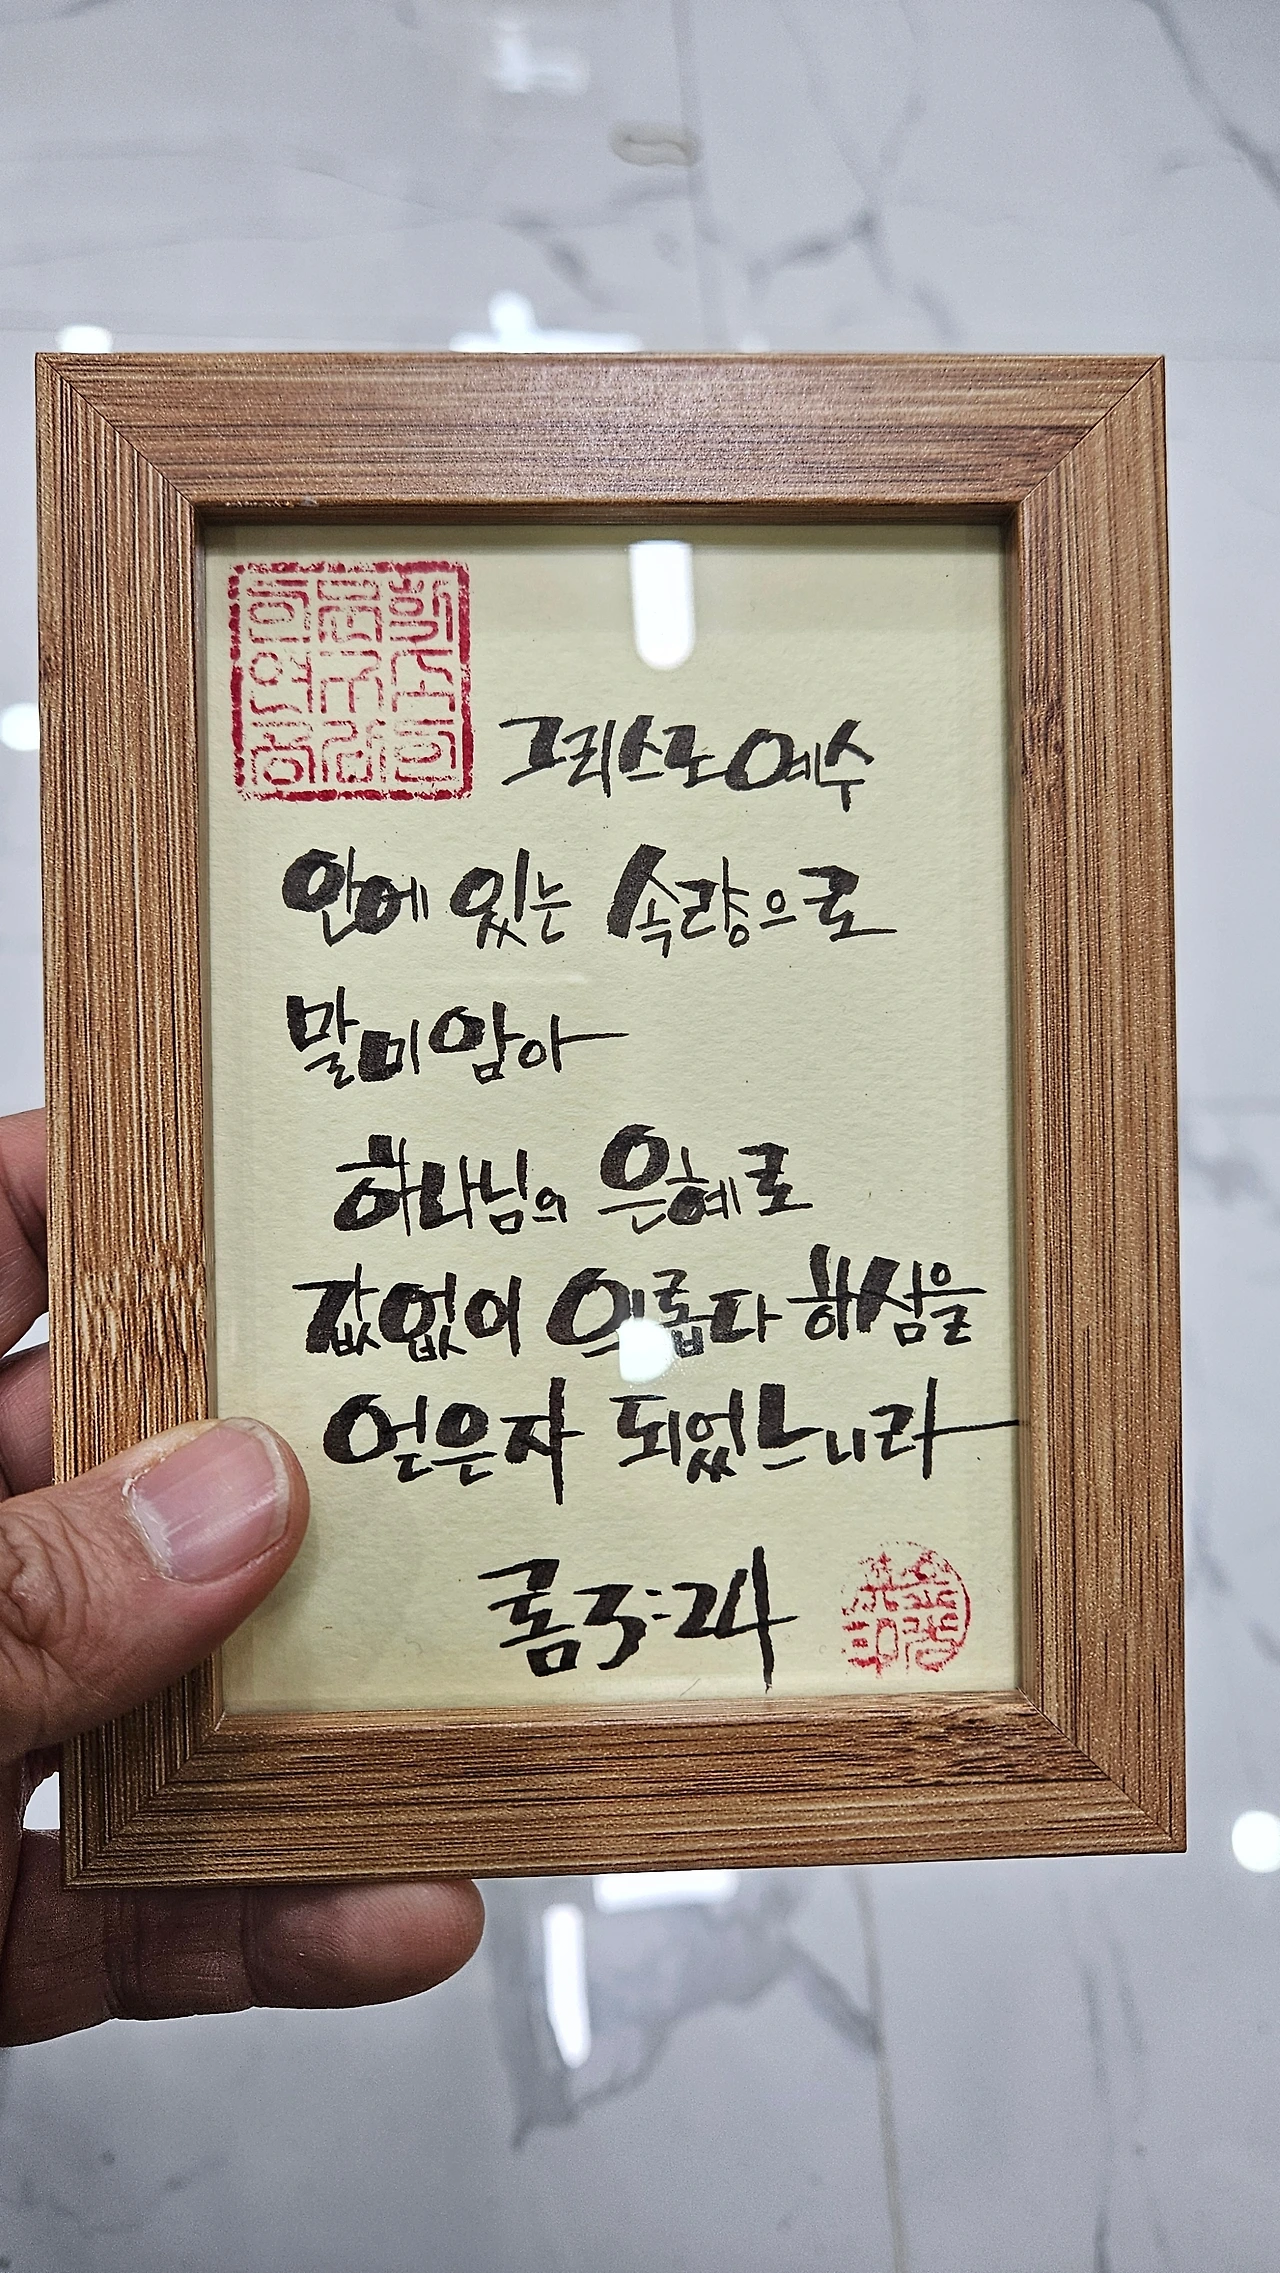 그리스도 예수
안에 있는 속량으로
말미암아
하나님의 은혜로
값없이 의롭다 하심을
얻은자 되었느니라
롬 3:24